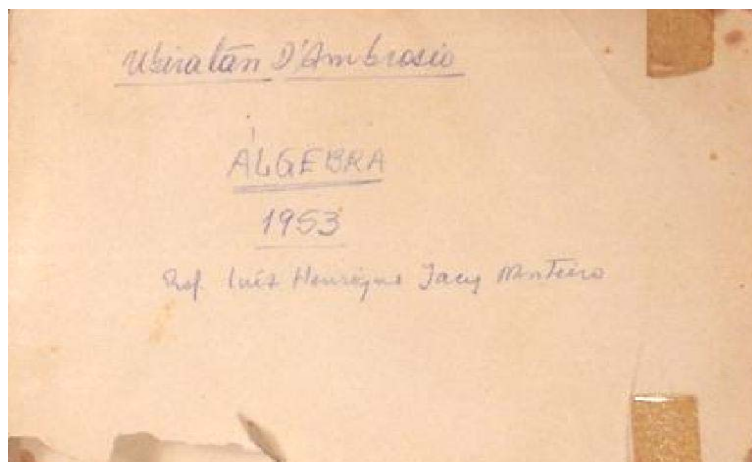 Ubiratan D'Ambrosio
ÁLGEBRA
1953
Prof. Luís Henrique Jacy Monteiro